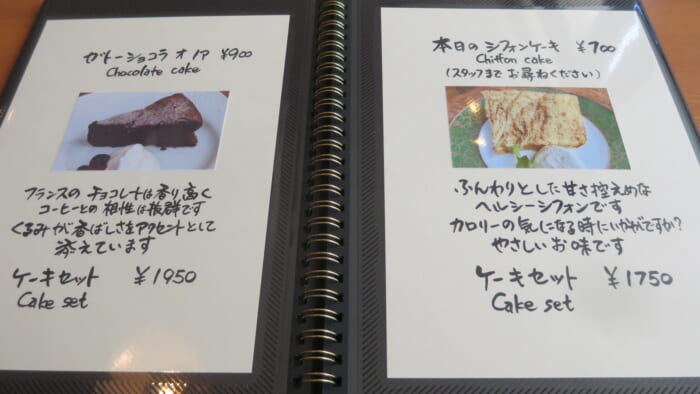 ガトーショコラ オ ノア ¥900
Chocolate cake
フランスの チョコレートは香り高く
コーヒーとの 相性は抜群です
くるみが香ばしさをアクセントとして
添えています
ケーキセット ¥1950
Cake set
本日の シフォンケーキ ¥700
Chiffon cake
(スタッフまで お尋ねください)
ふんわりとした 甘さ控えめな
ヘルシーシフォンです
カロリーの気になる時にいかがですか?
やさしいお味です
ケーキセット ¥1750
Cake set